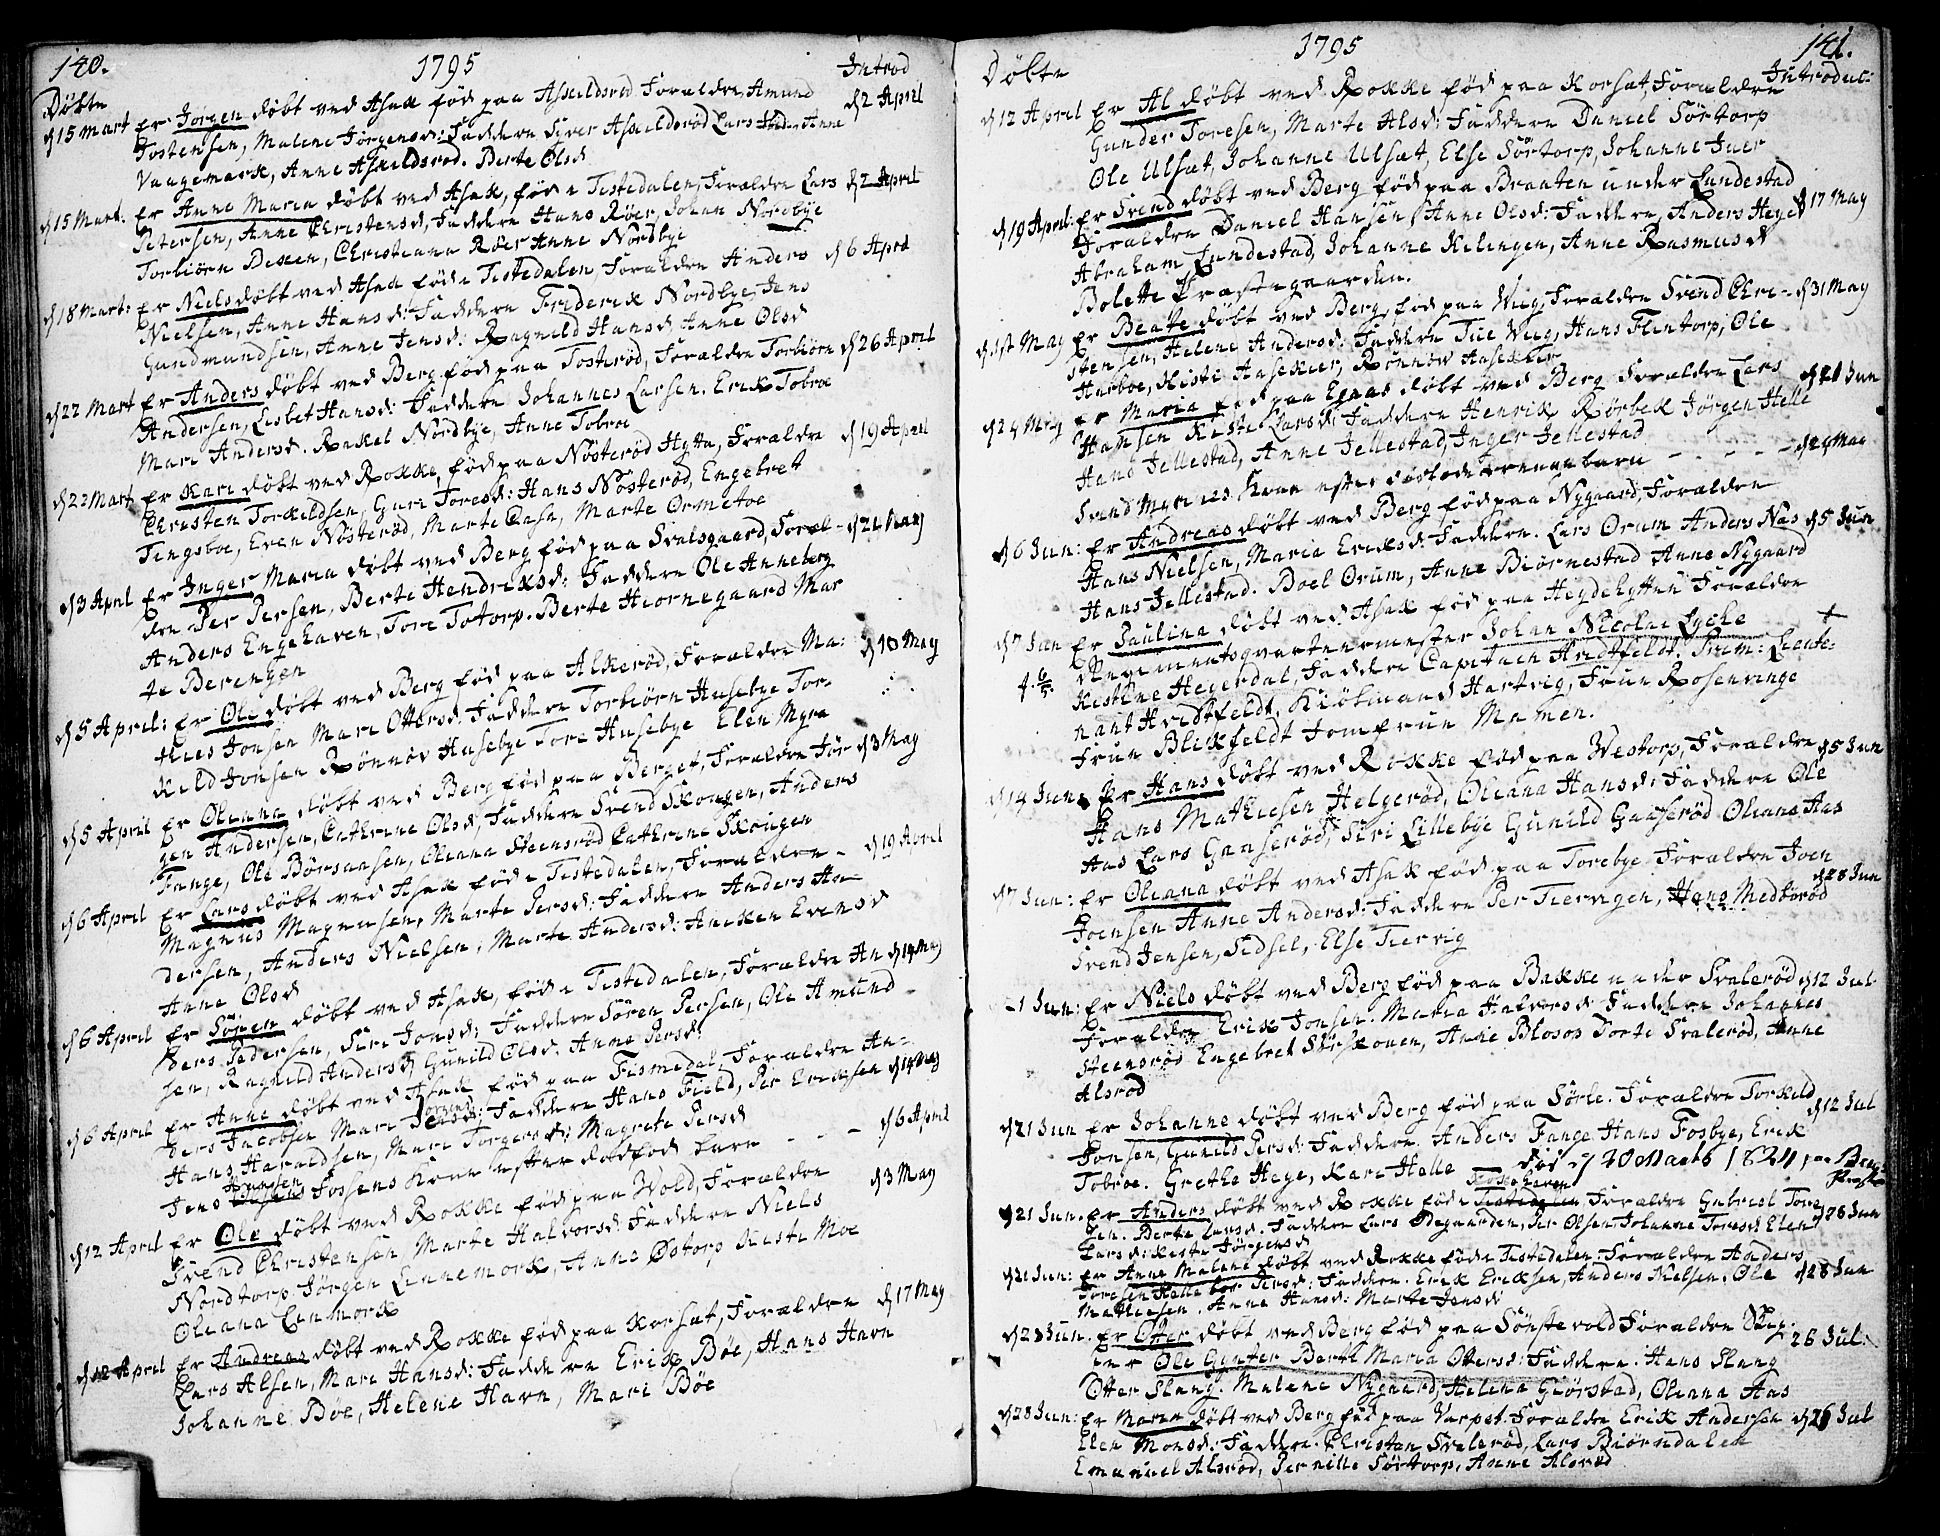 140. 1795 Introd
Døbte
d 15 Mart Er Jørgen døbt ved Asak fød paa Askildsrød Forældre, Amund d 2 April
Jostensen, Malene Jørgensd: Faddere Siver Askildsrød Lars Anne
Vaagemark, Anne Askildsrød. Berte Olsd
d 15 Mart: Er Anne Maria døbt ved Asak, fød i Tistedalen, Forældre Lars d 2 April
Petersen, Anne Christensd, Faddere Hans Røer, Johan Nordbye
Torbiörn Bexen, Christiana Røer Anne Nordbye
d 18 Mart: Er Niels døbt ved Asak fød i Tistedalen, Forældre Anders d 6 Aprl
Nielsen, Anne Hansd: Faddere Friderik Nordbye, Jens
Gundmundsen, Anne Jensd: Ragneld Hansd, Anne Olsd
d 22 Mart Er Anders døbt ved Berg fød paa Tosterød, Forældre Torbiörn d 26 April
Andersen, Lisbet Hansd: Faddere Johannes Larsen. Erik Tobroe
Mari Andersd. Rakel Nordbye, Anne Tobroe
d 22 Mart Er Kari døbt ved Rokke, fød paa Nösterød Hytta, Forældre d 19 April
Christen Torkildsen, Guri Toresd: Hans Nösterød, Engebret
Tingsboe, Even Nösterød, Marte Onsn, Marte Ormetoe
d 3 April Er Inger Maria døbt ved Berg fød paa Svalsgaard, Foræl- d 21 May
dre Per Persen, Berte Hendriksd: Faddere Ole Anneberg
Anders Engehaven, Tore Totorp. Berte Hiornegaard Mar
te Berengen
d 5 April: Er Ole døbt ved Berg fød paa Alkerød, Forældre Ma: d 10 May
thies Jonsen Mari Ottersd. Faddere Torbiörn Husebye Tor-
kild Jonsen Rønnov Husebye Tore Husebye Elen Myra
d 5 April Er Oleana døbt ved Berg fød paa Berget, Forældre Jør d 3 May
gen Andersen, Cathrine Olsd, Faddere Svend Skougen, Anders
Fange, Ole Börsaasen, Oleana Steensrød Cathrine Skougen
d 6 April Er Lars døbt ved Asak fød i Tistedalen, Forældre - d 19 April
Magnus Magnusen, Marte Persd: Faddere Anders An
dersen, Anders Nielsen, Marte Andersd: Aneken Evensd
Anne Olsd
d 6 April Er Sören døbt ved Asak, fød i Tistedalen, Forældre An d 14 May
ders Pedersen, Siri Jonsd: Faddere Sören Persen, Ole Amund
sen, Ragneld Andersd Gunild Olsd. Anne Persd:
d 6 April Er Anne døbt ved Asak fød paa Fismedal Forældre An- d 14 May
ders Jacobsen Mari Faddere Hans Field, Per Eriksen
Hans Haraldsen, Mari Torgersd: Magrete Persd
Jens Fossens Kone efter dødfød barn - - - d 6 April
d 12 April Er Ole døbt ved Rokke fød paa Wold, Forældre d 3 May
Svend Christensen Marte Halvorsd: Faddere Niels
Nordtorp Jørgen Linnemork, Anne Östorp Kisti Moe
Oleana Linmork
d 12 April Er Andreas døbt ved Rokke fød paa Korsæt, Forældre d 17 May
Lars Alsen, Mari Hansd: Faddere Erik Bøe, Hans Havn
Johanne Boe, Helene Havn, Mari Bøe
1795 141.
Døbte Introduc:
d 12 April Er Al døbt ved Rokke fød paa Korsæt, Forældre
Gunder Toresen, Marte Alsd: Faddere Daniel Sörtorp
Ole Ulsæt, Johanne Ulsæt, Else Sörtorp, Johanne Juer
d 19 April: Er Svend døbt ved Berg fød paa Braaten under Lundestad
Forældre Daniel Hansen, Anne Olsd: Faddere, Anders Hege d 17 May
Abraham Lundestad, Johanne Kilingen, Anne Rasmusd
Bolette Præstegaarden.
d 1st May Er Beate døbt ved Berg, fød paa Wiig, Forældre Svend Chri- d 31 May
stensen, Helene Andersd: Faddere Tue Wiig, Hans Flintorp, Ole
Harboe, Kisti Hasekier, Rønnov Hasekier
d 24 May er Maria fød paa Egaas døbt ved Berg Forældre Lars d 21 Jun
Hansen Kisti Larsd: Faddere Henrik Rørbek Jørgen Helle
Hans Jellestad, Anne Jellestad, Inger Jellestad
Svend Myrnes Kone efter dødfød drengebarn - - - - d 24 May
d 6 Jun: Er Andreas døbt ved Berg fød paa Nygaard, Forældre
Hans Nielsen, Maria Eriksd: Faddere. Lars Orum Anders Nas d 5 Jun
Hans Jellestad. Boel Orum, Anne Biörnestad Anne Nygaard
d 7 Jun Er Paulina døbt ved Asak fød paa Heydehytten Forældre
f. 6/5. Regimentsqvarteermester Johan Nicolai Lyche +
Kistine Hegerdal, Faddere Capitain Hvidtfeldt. Prem: Lieute:
nant Hvidtfeldt, Kiöbmand Hartvig, Frue Rosenvinge
Frue Blikfeldt Jomfrue Mamen.
d 14 Jun: Er Hans døbt ved Rokke fød paa Westorp, Forældre d 5 Jun
Hans Mathiesen Helgerød, Oleana Hansd: Faddere Ole
Aas Lars Gaaserød, Siri Lillebye Gunild Gaaserød Oleana Aas
d 7 Jun: Er Oleana døbt ved Asak fød paa Torebye Forældre Joen d 28 Jun
Joensen Anne Andersd: Faddere Per Tiervigen, Hans Medbørød
Svend Jensen, Sidsel, Else Tiervig
21 Jun: Er Niels døbt ved Berg fød paa Bakke under Svalerød d 12 Jul
Forældre Erik Jonsen. Maria Halvorsd: Faddere Johannes
Steensrød Engebret Stiskouen, Anne Blosop Dorte Svalerød, Anne
Alsrød
d 21 Jun Er Johanne døbt ved Berg fød paa Sörle. Forældre Torkild d 12 Jul
Jonsen, Gunild Persd: Faddere. Anders Fange Hans Fosbye, Erik
Tobroe. Grethe Hege, Kari Helle
død d 20 Marts 1824
d 21 Jun. Er Anders døbt ved Rokke fød i Tistedalen Forældre Gabriel Tore d 28 Jun
sen. Berte Larsd. Faddere Lars Ødegaarden, Per Olsen Johanne Toresd Elen
Larsd: Kisti Jørgensd
d 21 Jun: Er Anne Malene døbt ved Rokke fød i Tistedalen. Forældre Anders
Toresen Kalleboe Persd: Faddere. Erik Eriksen, Anders Nielsen. Ole d 28 Jun
Mathiesen. Anne Hansd: Marte Jonsd
d 28 Jun. Er Otter døbt ved Berg fød paa Sönste vold Forældre Skip-
per Ole Gynter Berthe Maria Ottersd: Faddere. Hans Slang 26 Jul.
Otter Slang. Malene Nygaard, Helena Giörstad, Oleana Aas
d 28 Jun: Er Maren døbt ved Berg fød paa Varpet. Forældre Erik Andersen d 26 Jul
Elen Monsd: Faddere. Christen Svalerød, Lars Biörndalen
Emanuel Alsrød, Pernille Sörtorp, Anne Alsrød